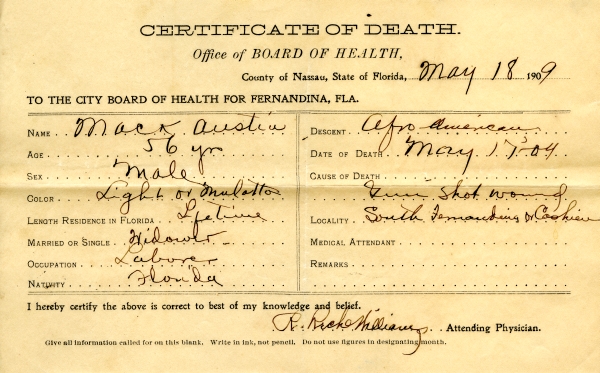 CERTIFICATE OF DEATH.
Office of BOARD OF HEALTH,
County of Nassau, State of Florida, May 18 1909
TO THE CITY BOARD OF HEALTH FOR FERNANDINA, FLA.
NAME Mack Austin
AGE 56 yrs
SEX Male
COLOR Light or Mulatto
LENGTH RESIDENCE IN FLORIDA Lifetime
MARRIED OR SINGLE Widower
OCCUPATION Laborer
NATIVITY Florida
DESCENT Afro American
DATE OF DEATH May 17
CAUSE OF DEATH
Gun Shot wound
LOCALITY South Fernandina
MEDICAL ATTENDANT
REMARKS
I hereby certify the above is correct to best of my knowledge and belief.
Williams Attending Physician.
Give all information called for on this blank. Write in ink, not pencil. Do not use figures in designating month.